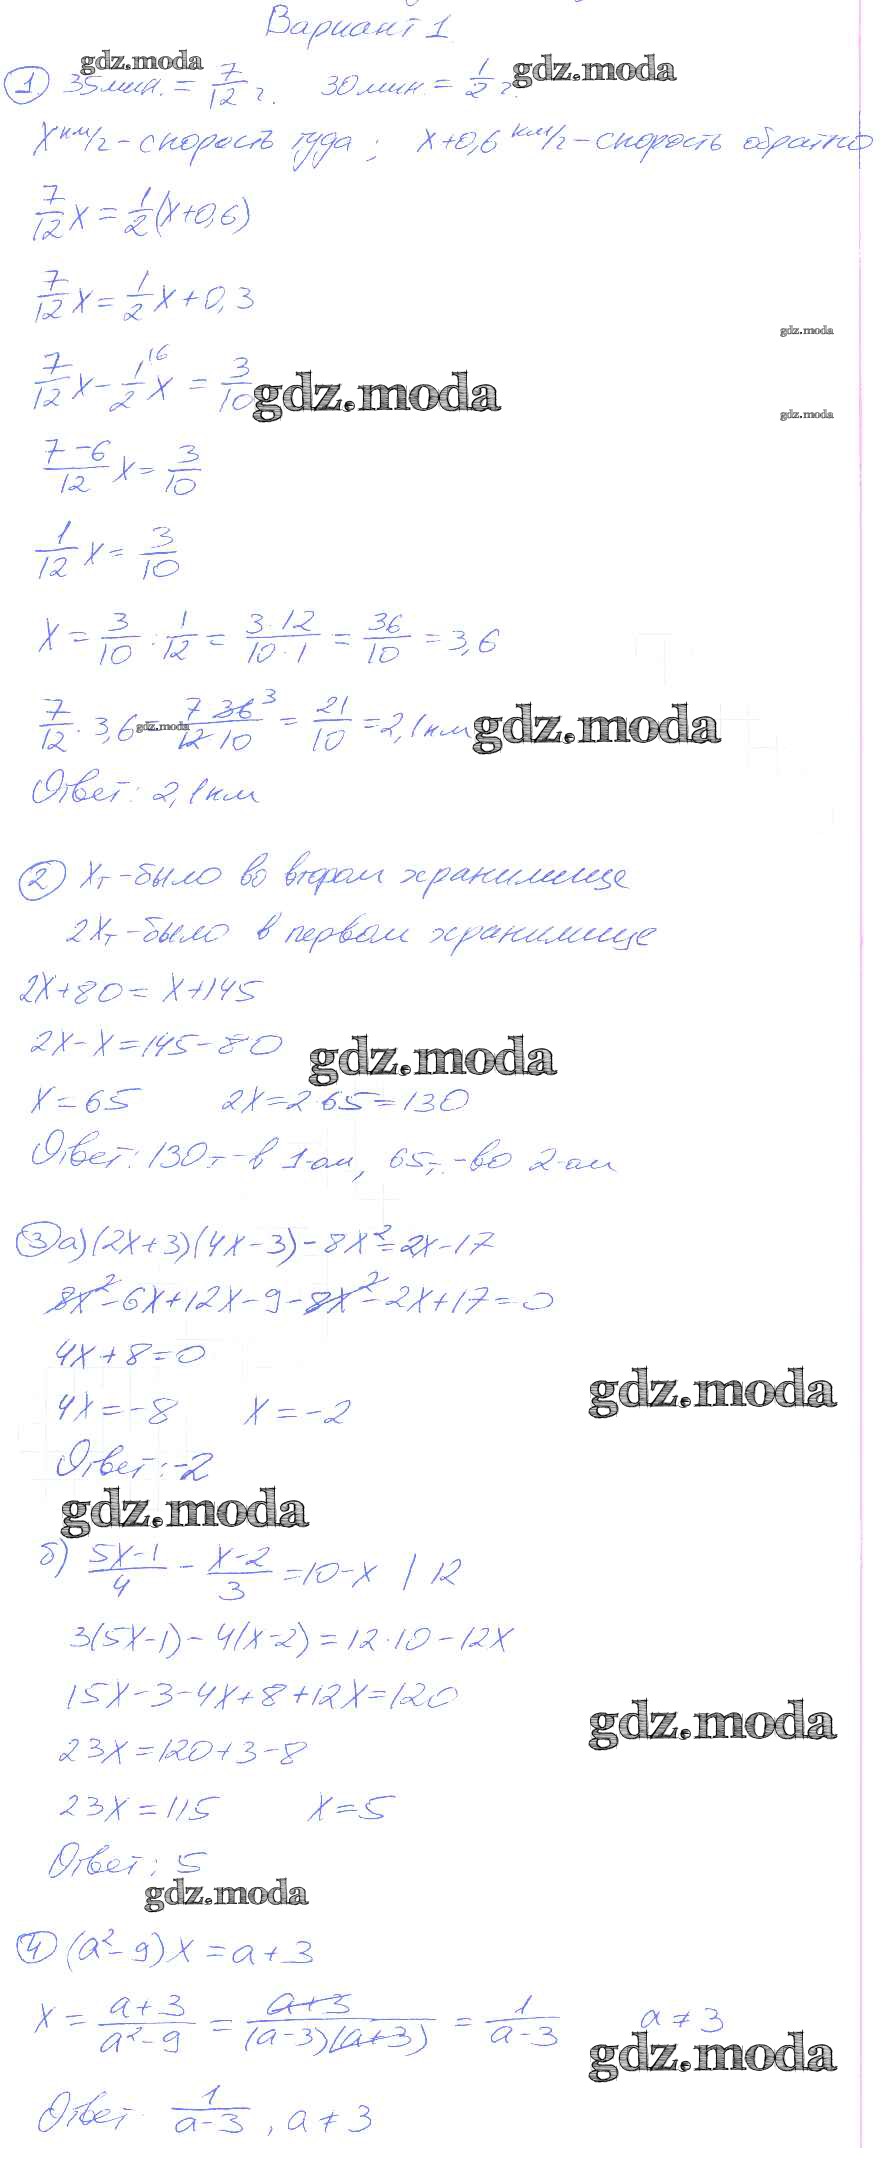 Вариант 1
gdz.moda
gdz.moda
① 35мин. = 7/12 г. 30мин. = 1/2 г.
x км/г - скорость туда; x+0,6 км/г - скорость обратно
7/12 x = 1/2 (x+0,6)
7/12 x = 1/2 x + 0,3
gdz.moda
7/12 x - 1/2 x = 3/10
gdz.moda
gdz.moda
(7-6)/12 x = 3/10
1/12 x = 3/10
x = 3/10 : 1/12 = (3·12)/(10·1) = 36/10 = 3,6
7/12 · 3,6 = (7 36 3)/(12 10) = 21/10 = 2,1 км
gdz.moda
gdz.moda
Ответ: 2,1 км
② xт - было во втором хранилище
2xт - было в первом хранилище
2x+80 = x+145
2x-x = 145-80
gdz.moda
x = 65 2x = 2·65 = 130
Ответ: 130т - в 1-ом, 65т. - во 2-ом
③ а) (2x+3)(4x-3) - 8x² = 2x - 17
8x² - 6x + 12x - 9 - 8x² - 2x + 17 = 0
4x + 8 = 0
gdz.moda
4x = -8 x = -2
Ответ: -2
gdz.moda
б) (5x-1)/4 - (x-2)/3 = 10-x | 12
3(5x-1) - 4(x-2) = 12·10 - 12x
15x - 3 - 4x + 8 + 12x = 120
gdz.moda
23x = 120 + 3 - 8
23x = 115 x = 5
Ответ: 5
gdz.moda
④ (a²-9)x = a+3
x = (a+3)/(a²-9) = (a+3)/((a-3)(a+3)) = 1/(a-3) a ≠ 3
gdz.moda
Ответ 1/(a-3), a ≠ 3